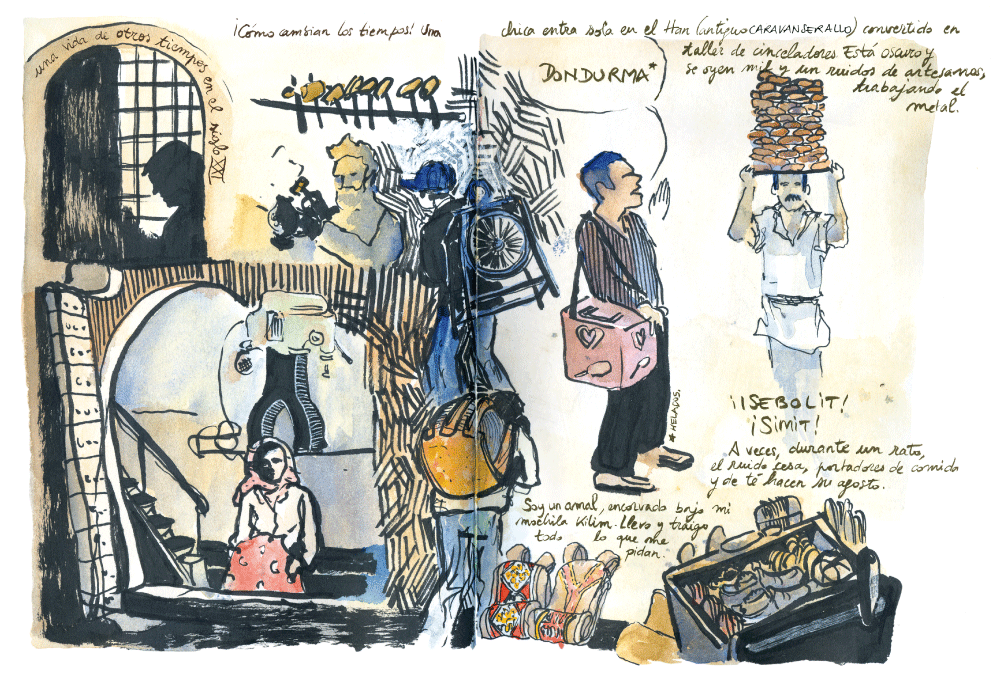 una vida de otros tiempos en el siglo XXI
¡Cómo cambian los tiempos! Una chica entra sola en el Han (antiguo CARAVANSERALLO) convertido en
taller de cinceladores. Está oscuro y
se oyen mil y un ruidos de artesanos,
trabajando el
metal.
DONDURMA*
* HELADOS.
¡¡SEBOLIT!
¡SIMIT!
A veces, durante un rato,
el ruido cesa, portadores de comida
y de té hacen su agosto.
Soy un amal, encorvado bajo mi
mochila Kilim. Llevo y traigo
todo lo que me
pidan.